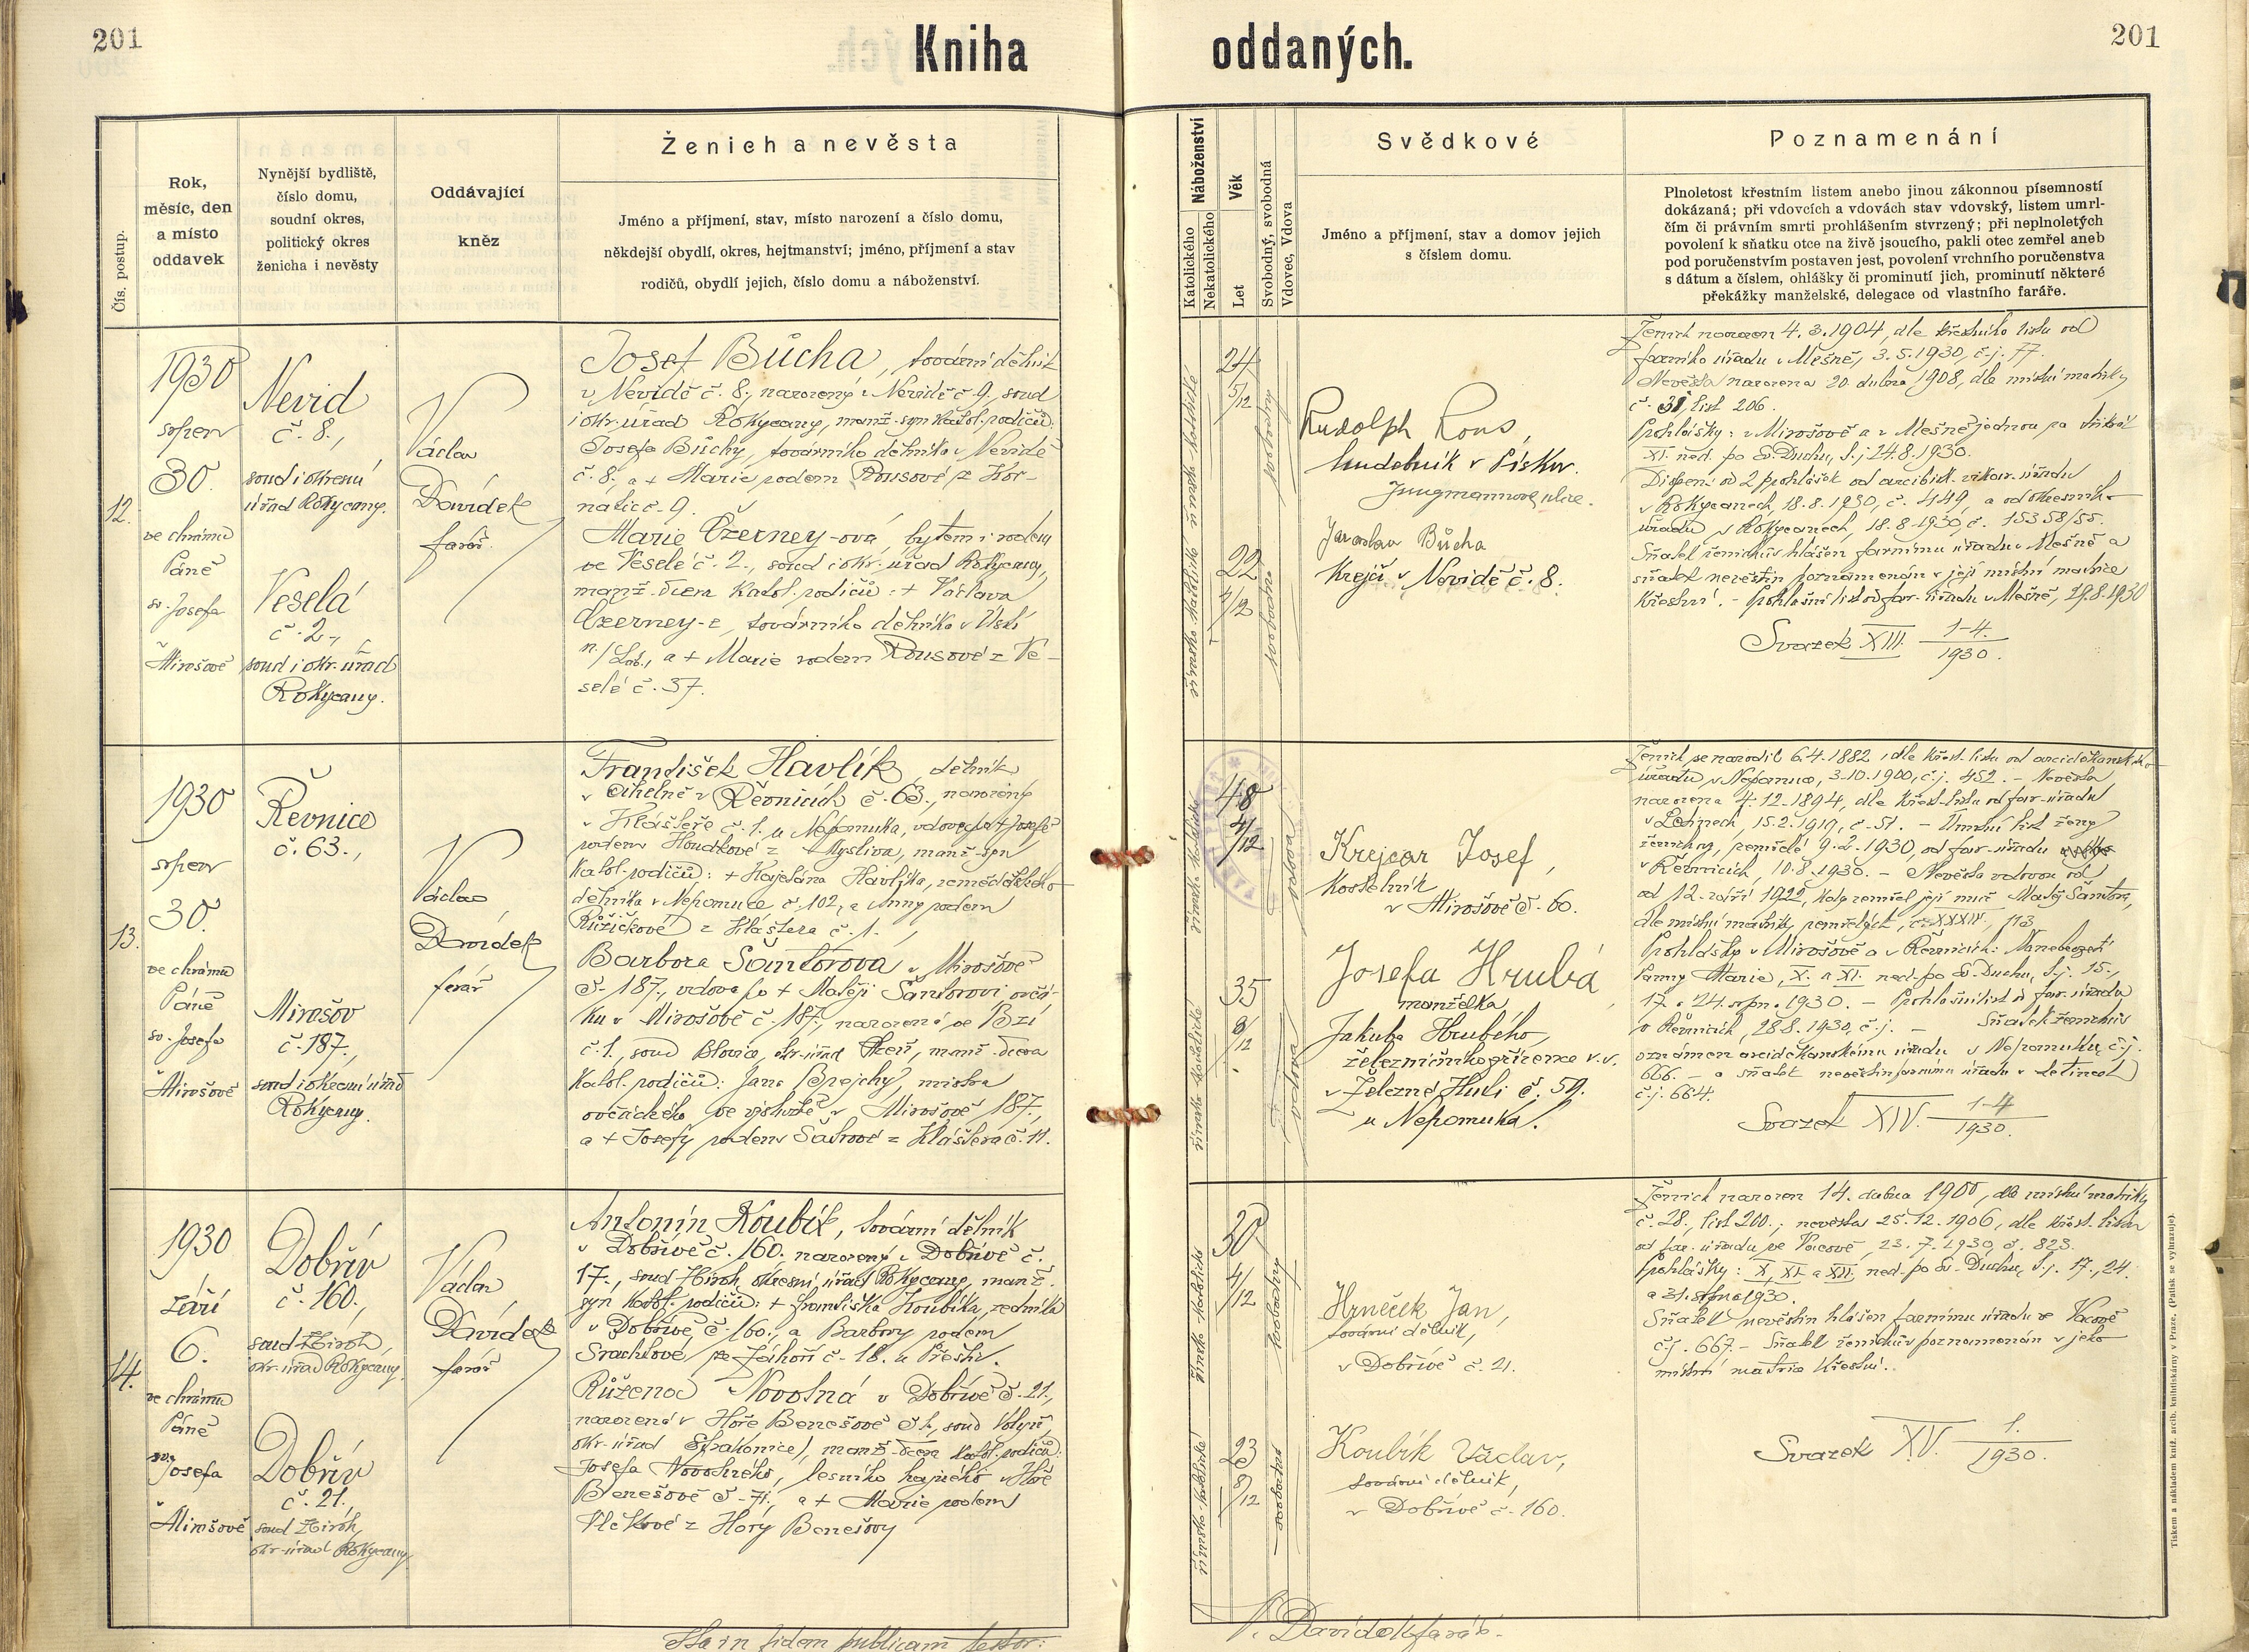 201
Kniha oddaných.
201
Čís. postup.
Rok,
měsíc, den
a místo
oddavek
Nynější bydliště,
číslo domu,
soudní okres,
politický okres
ženicha i nevěsty
Oddávající
kněz
Ženich a nevěsta
Jméno a příjmení, stav, místo narození a číslo domu,
někdejší obydlí, okres, hejtmanství; jméno, příjmení a stav
rodičů, obydlí jejich, číslo domu a náboženství.
Náboženství
Katolického
Nekatolického
Věk
Let
Svobodný, svobodná
Vdovec, Vdova
Svědkové
Jméno a příjmení, stav a domov jejich
s číslem domu.
Poznamenání
Plnoletost křestním listem anebo jinou zákonnou písemností
dokázaná; při vdovcích a vdovách stav vdovský, listem umrl-
čím či právním smrti prohlášením stvrzený; při neplnoletých
povolení k sňatku otce na živě jsoucího, pakli otec zemřel aneb
pod poručenstvím postaven jest, povolení vrchního poručenstva
s dátum a číslem, ohlášky či prominutí jich, prominutí některé
překážky manželské, delegace od vlastního faráře.
12.
1930
srpen
30.
ve chrámu
Páně
sv. Josefa
v Mirošově
Nevid
č. 8.,
soud i okresní
úřad Rokycany.
Veselá
č. 2.,
soud i okr. úřad
Rokycany.
Václav
Davídek
farář.
Josef Bůcha, tovární dělník
v Nevidě č. 8., narozený v Nevidě č. 9, soud
i okr. úřad Rokycany, manž. syn katol. rodičů:
Josefa Bůchy, továrního dělníka v Nevidě
č. 8., a + Marie rodem Rousové z Kor-
natic č. 9.
Marie Czerney-ová, bytem i rodem
ve Veselé č. 2., soud i okr. úřad Rokycany,
manž. dcera katol. rodičů: + Václava
Czerney-e, továrního dělníka v Ústí
n./Lab., a + Marie rodem Rousové z Ve-
selé č. 37.
římsko-katolické
římsko-katolické
24
5/12
22
4/12
svobodný
svobodná
Rudolph Rous,
hudebník v Písku.
Jungmannova ulice.
Jaroslav Bůcha
Krejčí v Nevidě č. 8.
Ženich narozen 4. 3. 1904, dle křestního listu od
farního úřadu v Mešně, 3. 5. 1930, č. j. 77.
Nevěsta narozena 20. dubna 1908, dle místní matriky
č. 31, list 206.
Prohlášky: v Mirošově a v Mešně jednou za třikrát
XI. ned. po sv. Duchu, t. j. 24. 8. 1930.
Dispens od 2 prohlášek od arcibisk. vikar. úřadu
v Rokycanech, 18. 8. 1930, č. 449, a od okresního
úřadu v Rokycanech, 18. 8. 1930, č. 15358/55.
Sňatek ženichův hlášen farnímu úřadu v Mešně a
sňatek nevěstin poznamenán v její místní matrice
křestní. - Prohlašní list od far. úřadu v Mešně, 29. 8. 1930
Svazek XIII. 1-4./1930.
13.
1930
srpen
30.
ve chrámu
Páně
sv. Josefa
v Mirošově
Řevnice
č. 63.,
Mirošov
č. 187.,
soud i okresní úřad
Rokycany.
Václav
Davídek
farář
František Havlík, dělník
v cihelně v Řevnicích č. 63., narozený
v Klášteře č. 1. u Nepomuka, vdovec po + Josefě
rodem Houdkové z Myslíva, manž. syn
katol. rodičů: + Kajetána Havlíka, zemědělského
dělníka v Nepomuce č. 102, a Anny rodem
Růžičkové z Kláštera č. 1.
Barbora Šantorová v Mirošově
č. 187., vdova po + Matěji Šantorovi ovčá-
ku v Mirošově č. 187., narozená ve Bzí
č. 1., soud Blovice, okr. úřad Plzeň, manž. dcera
katol. rodičů: Jana Brejchy, mistra
ovčáckého ve výslužbě v Mirošově 187.,
a + Josefy rodem Šatrové z Kláštera č. 11.
římsko-katolické
římsko-katolické
48
4/12
35
8/12
vdova
Krejcar Josef,
Kostelník
v Mirošově č. 60.
Josefa Hrubá
manželka
Jakuba Hrubého,
železničního zřízence v. v.
v Železné Huti č. 59.
u Nepomuka.
Ženich se narodil 6. 4. 1882, dle křest. listu od arciděkanského
úřadu v Nepomuce, 3. 10. 1900, č. j. 452. - Nevěsta
narozena 4. 12. 1894, dle křest. listu od far. úřadu
v Letinech, 15. 2. 1919, č. 51. - Úmrtní list ženy
ženichovy, zemřelé 9. 2. 1930, od far. úřadu
v Řevnicích, 10. 8. 1930. - Nevěsta vdovou
od 12. září 1922, kdy zemřel její muž Matěj Šantora,
dle místní matriky zemřelých, č. XXXIV., 113
Prohlášky v Mirošově a v Řevnicích: Nanebevzetí
Panny Marie, X. a XI. ned. po sv. Duchu, t. j. 15.,
17. a 24. srpna 1930. - Prohlašní list od far. úřadu
v Řevnicích, 28. 8. 1930, č. j. - Sňatek ženichův
oznámen arciděkanskému úřadu v Nepomuku, č. j.
666. - a sňatek nevěstin farnímu úřadu v Letinech
č. j. 664.
Svazek XIV. 1-4/1930.
14.
1930
září
6.
ve chrámu
Páně
sv. Josefa
v Mirošově
Dobřív
č. 160.,
soud Zbiroh,
okr. úřad Rokycany.
Dobřív
č. 21.,
soud Zbiroh,
okr. úřad Rokycany
Václav
Davídek
farář
Antonín Koubík, tovární dělník
v Dobřívě č. 160. narozený v Dobřívě č.
17., soud Zbiroh, okresní úřad Rokycany, manž.
syn katol. rodičů: + Františka Koubíka, zedníka
v Dobřívě, č. 160., a Barbory rodem
Srachtové ze Záhoří č. 18. u Přešti.
Růžena Novotná v Dobřívě č. 21.,
narozená v Hoře Benešově č. 71., soud Volyň,
okr. úřad Strakonice, manž. dcera katol. rodičů:
Josefa Novotného, lesního hajného v Hoře
Benešově č. 71., a + Marie rodem
Vlčkové z Hory Benešovy
římsko-katolické
římsko-katolické
30
4/12
23
8/12
svobodný
svobodná
Hrneček Jan,
tovární dělník,
v Dobřívě č. 21.
Koubík Václav,
tovární dělník,
v Dobřívě č. 160.
Ženich narozen 14. dubna 1900, dle místní matriky
č. 28., list 200.; nevěsta 25. 12. 1906, dle křest. listu
od far. úřadu ve Vacově, 23. 7. 1930, č. 823.
Prohlášky: X., XI. a XII. ned. po sv. Duchu, t. j. 17., 24.
a 31. srpna 1930.
Sňatek nevěstin hlášen farnímu úřadu ve Vacově
č. j. 667. - Sňatek ženichův poznamenán v jeho
místní matrice křestní.
Svazek XV. 1./1930.
Ita in fidem publicam testor:
V. Davídek farář.
Tiskem a nákladem kníž. arcib. knihtiskárny v Praze. (Patisk se vyhrazuje).